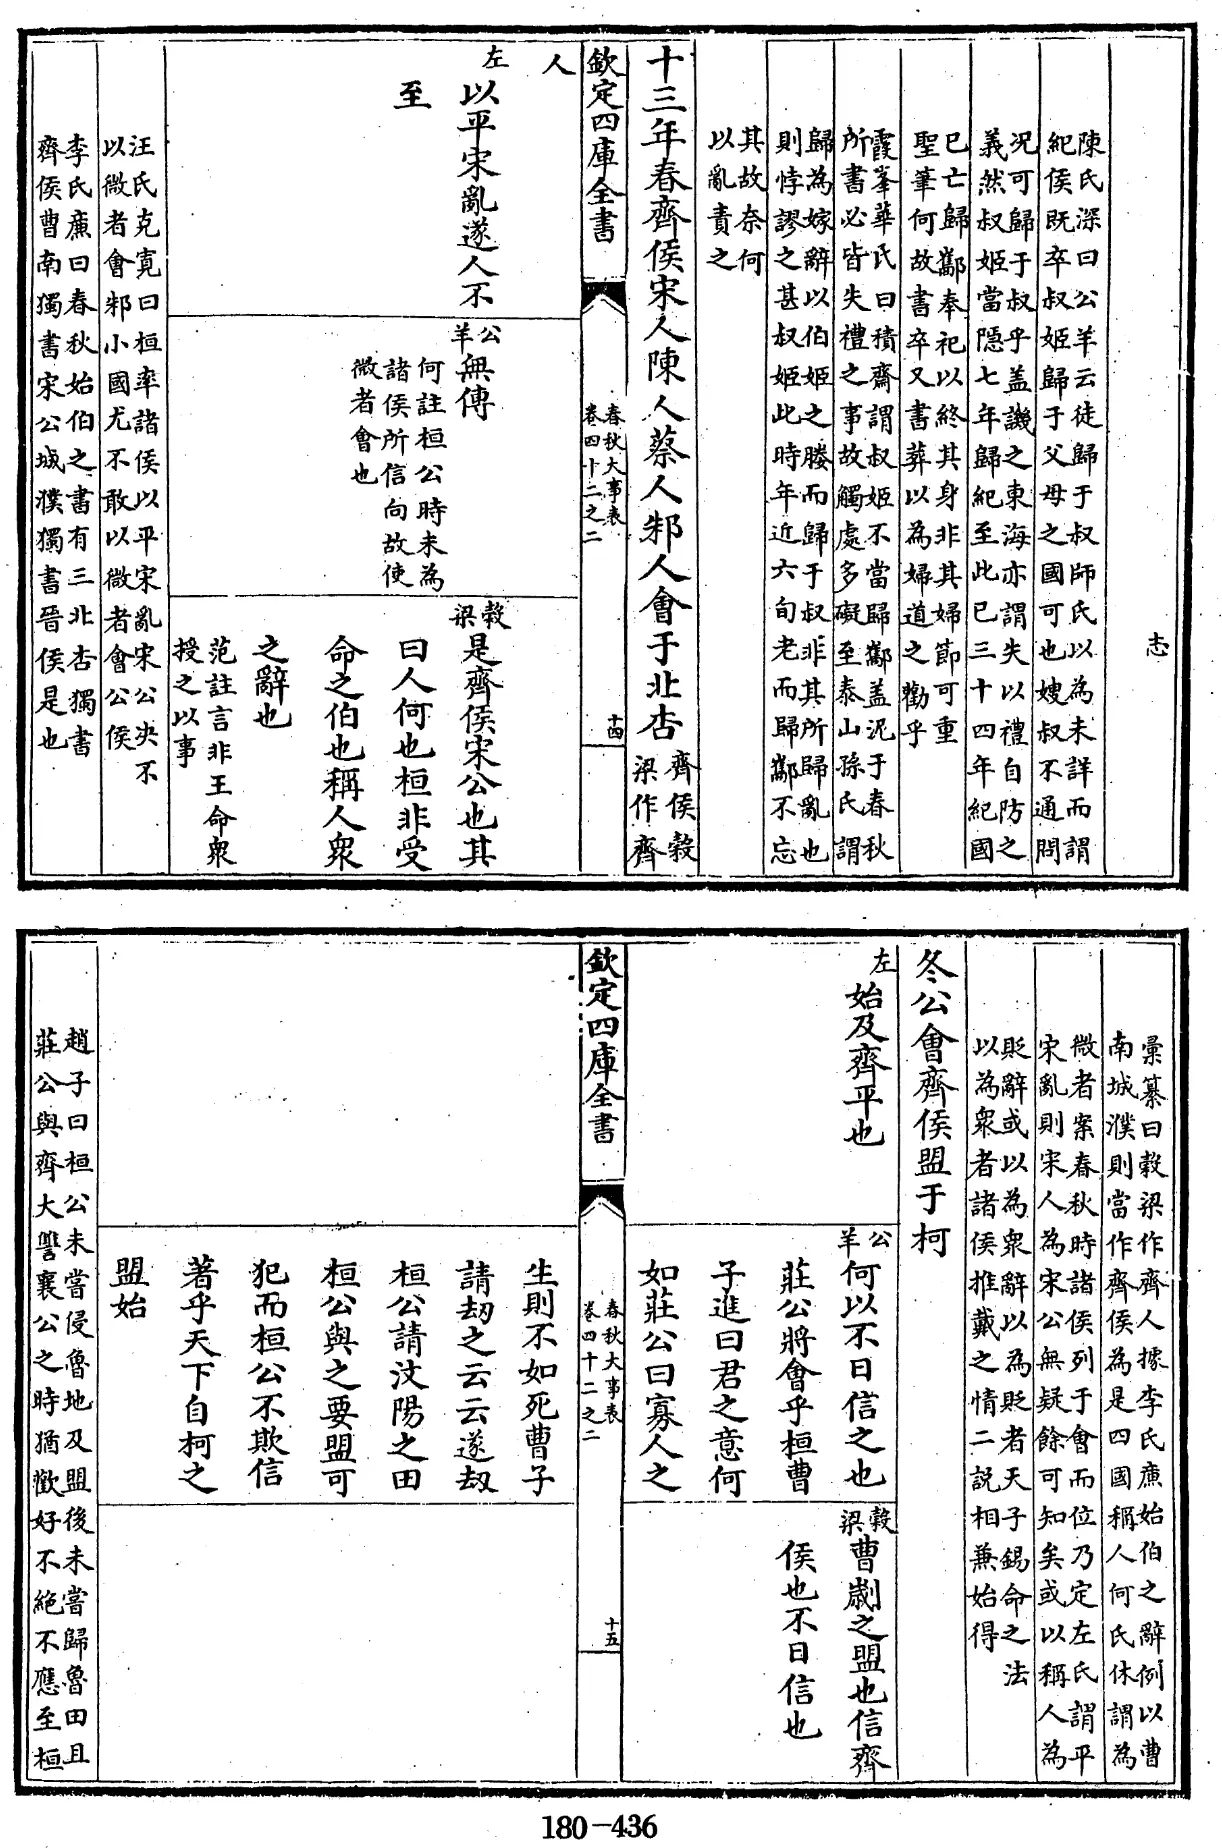 志
陳氏深曰公羊云徒歸于叔師氏以為未詳而謂
紀侯既卒叔姬歸于父母之國可也嫂叔不通問
况可歸于叔乎盖譏之東海亦謂失以禮自防之
義然叔姬當隱七年歸紀至此已三十四年紀國
已亡歸酅奉祀以終其身非其婦節可重
聖筆何故書卒又書葬以為婦道之勸乎
霞峯華氏曰積齋謂叔姬不當歸酅盖泥于春秋
所書必皆失禮之事故觸處多礙至泰山孫氏謂
歸為嫁辭以伯姬之媵而歸于叔非其所歸亂也
則悖謬之甚叔姬此時年近六旬老而歸酅不忘
其故奈何
以亂責之
十三年春齊侯宋人陳人蔡人邾人會于北杏
齊侯穀
梁作齊
欽定四庫全書
春秋大事表
卷四十二之二
十四
人
左
以平宋亂遂人不
至
公
羊
無傳
何註桓公時未為
諸侯所信向故使
微者會也
穀
梁
是齊侯宋公也其
曰人何也桓非受
命之伯也稱人衆
之辭也
范註言非王命衆
授之以事
汪氏克寛曰桓率諸侯以平宋亂宋公決不
以微者會邾小國尤不敢以微者會公侯
李氏廉曰春秋始伯之書有三北杏獨書
齊侯曹南獨書宋公城濮獨書晉侯是也
彙纂曰穀梁作齊人據李氏廉始伯之辭例以曹
南城濮則當作齊侯為是四國稱人何氏休謂為
微者案春秋時諸侯列于會而位乃定左氏謂平
宋亂則宋人為宋公無疑餘可知矣或以稱人為
貶辭或以為衆辭以為貶者天子錫命之法
以為衆者諸侯推戴之情二説相兼始得
冬公會齊侯盟于柯
左
始及齊平也
公
羊
何以不日信之也
莊公將會乎桓曹
子進曰君之意何
如莊公曰寡人之
穀
梁
曹劌之盟也信齊
侯也不日信也
欽定四庫全書
春秋大事表
卷四十二之二
十五
生則不如死曹子
請劫之云云遂劫
桓公請汶陽之田
桓公與之要盟可
犯而桓公不欺信
著乎天下自柯之
盟始
趙子曰桓公未嘗侵魯地及盟後未嘗歸魯田且
莊公與齊大讐襄公之時猶歡好不絶不應至桓
180-436